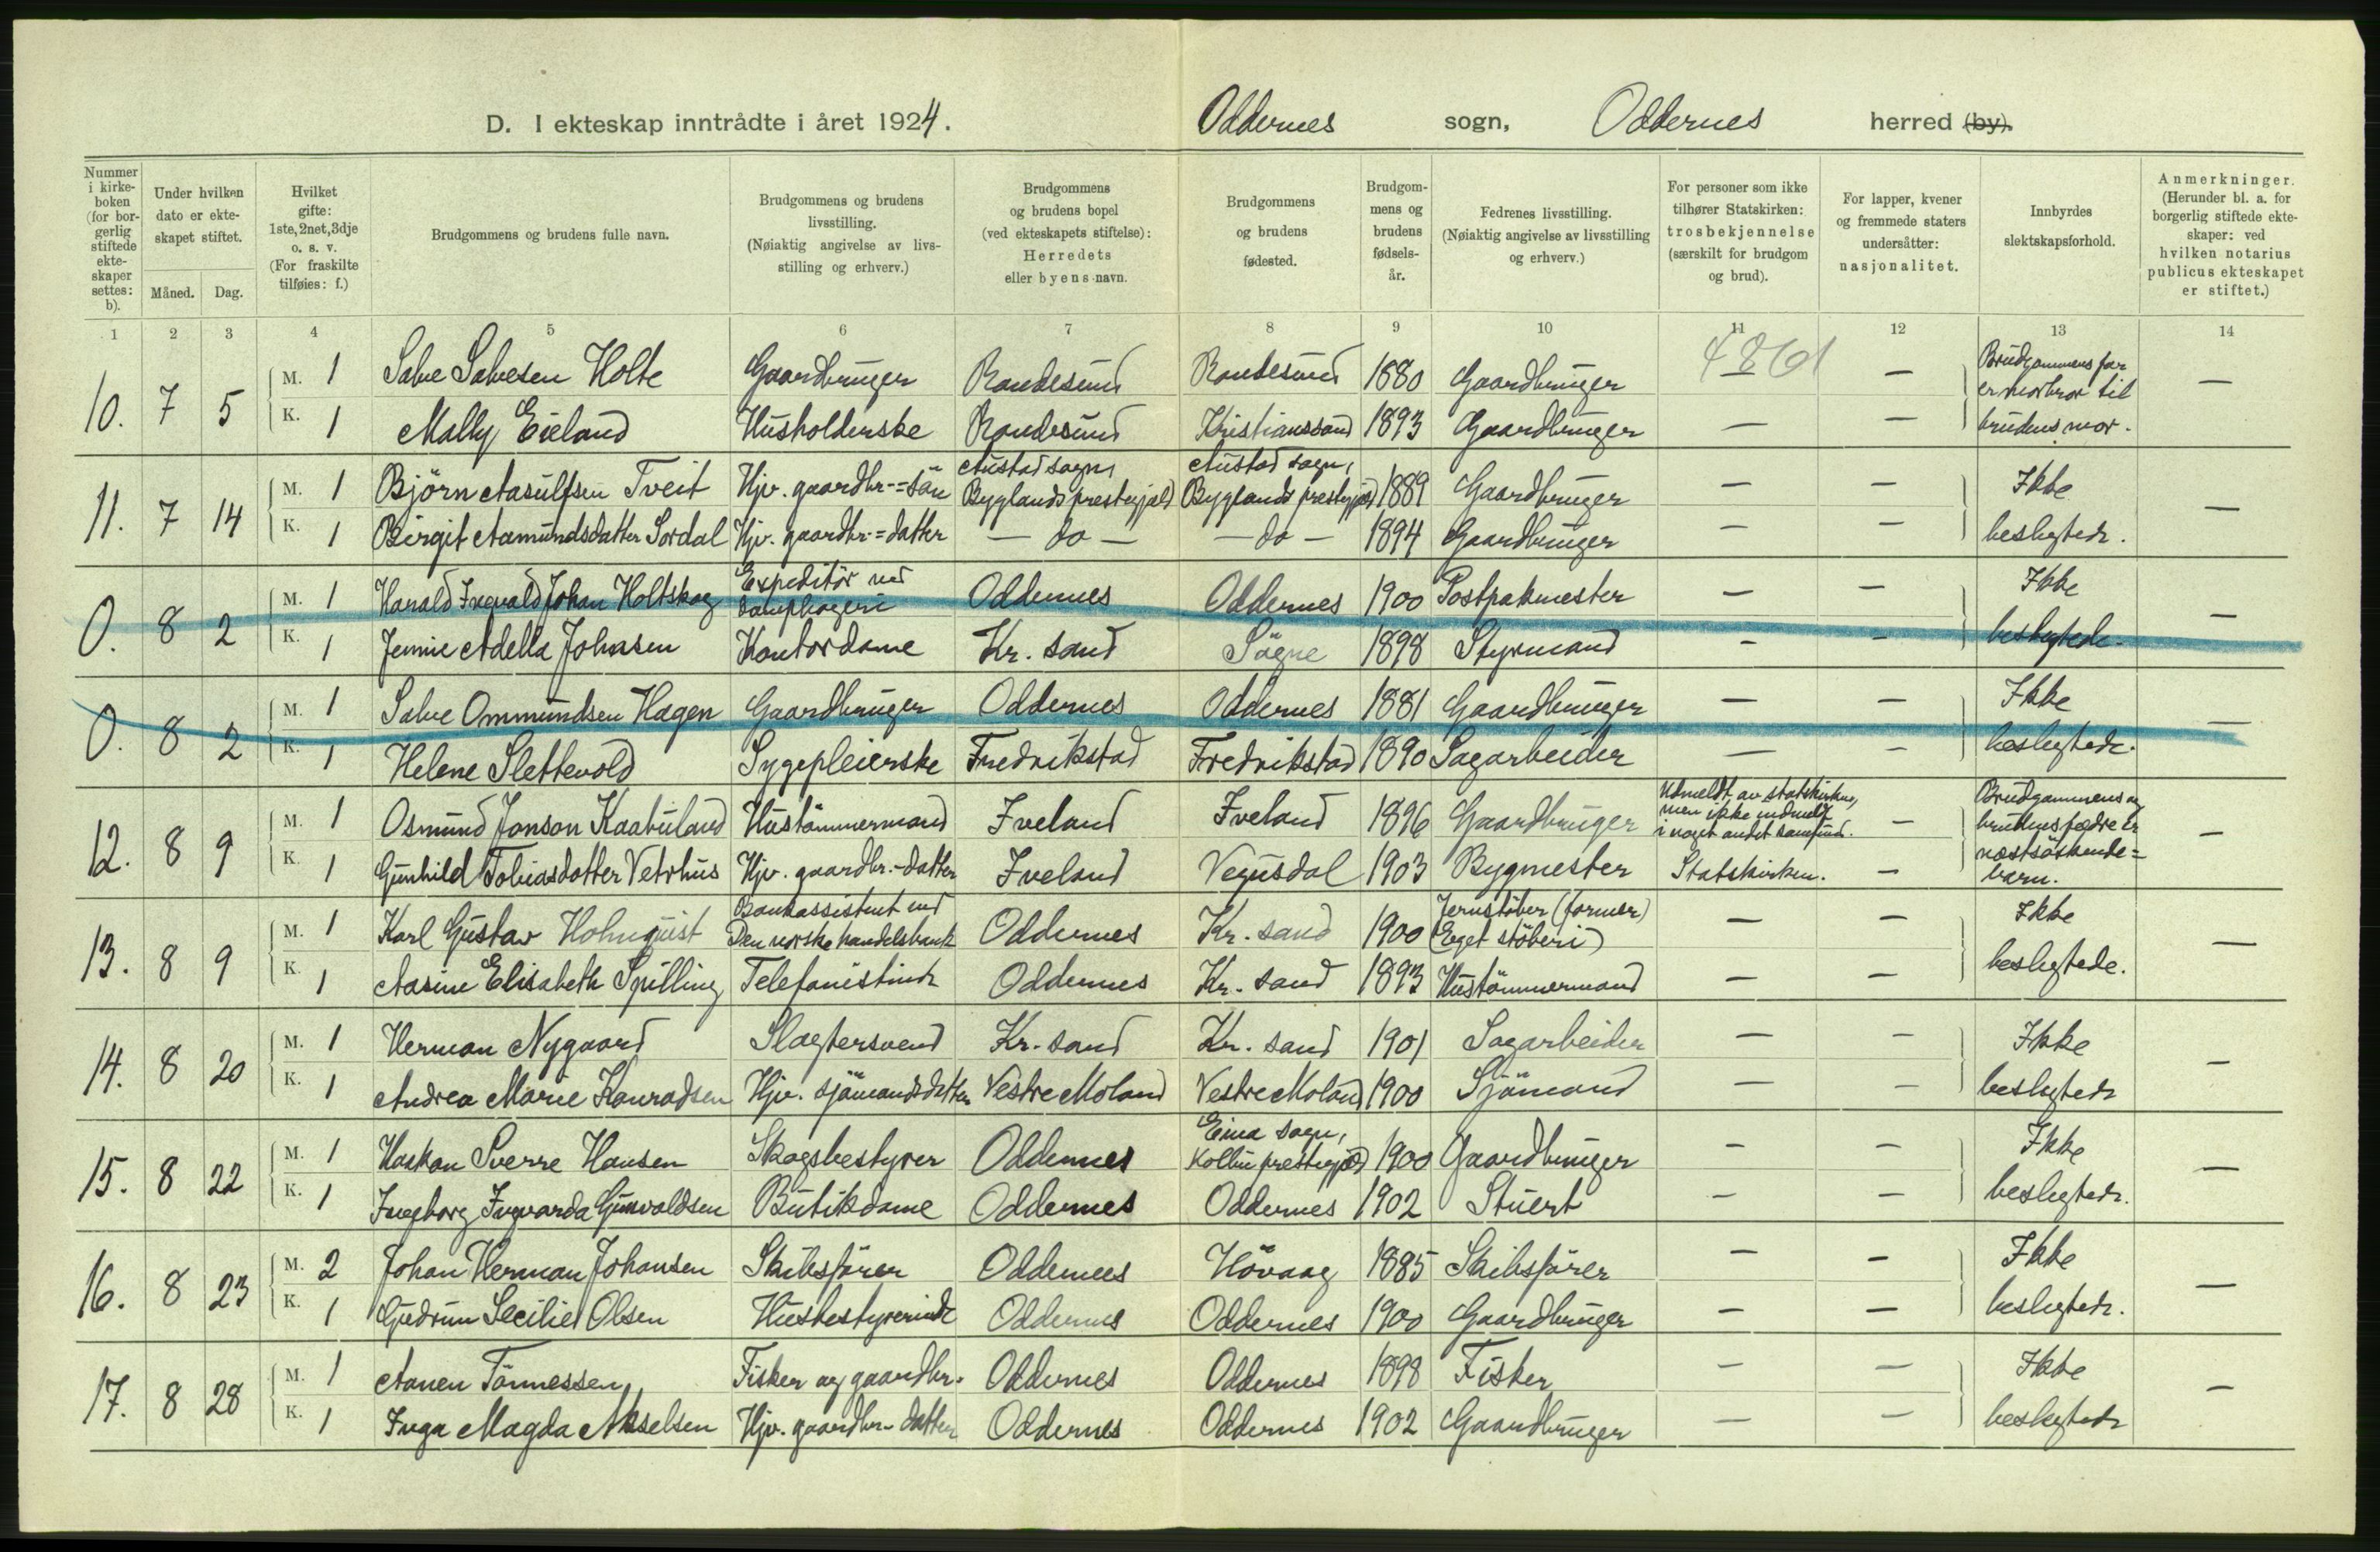 D. I ekteskap inntrådte i året 1924. Oddernes sogn, Oddernes herred (by).
Nummer i kirke-boken (for bor-gerlig stiftede ekte-skaper settes: b).
Under hvilken dato er ekte-skapet stiftet.
Måned. Dag.
Hvilket gifte: 1ste, 2net, 3dje o. s. v. (For fraskilte tilføies: f.)
Brudgommens og brudens fulle navn.
Brudgommens og brudens livsstilling. (Nøiaktig angivelse av livs-stilling og erhverv.)
Brudgommens og brudens bopel (ved ekteskapets stiftelse): Herredets eller byens navn.
Brudgommens og brudens fødested.
Brudgom-mens og brudens fødsels-år.
Fedrenes livsstilling. (Nøiaktig angivelse av livsstilling og erhverv.)
For personer som ikke tilhører Statskirken: trosbekjennelse (særskilt for brudgom og brud).
For lapper, kvener og fremmede staters undersåtter: nasjonalitet.
Innbyrdes slektskapsforhold.
Anmerkninger. (Herunder bl. a. for borgerlig stiftede ekte-skaper: ved hvilken notarius publicus ekteskapet er stiftet.)
1 2 3 4 5 6 7 8 9 10 11 12 13 14
10. 7 5 M. 1 Salve Salvesen Holte Gaardbruger Randesund Randesund 1880 Gaardbruger — — Brudgommens far er morbror til brudens mor. —
K. 1 Mally Eieland Husholderske Randesund Kristianssand 1893 Gaardbruger — —
11. 7 14 M. 1 Björn Aasulfsen Tveit Hjv. gaardbr.=sön Austad sogn, Byglands prestegjeld Austad sogn, Byglands prestegjeld 1889 Gaardbruger — — Ikke beslegtede. —
K. 1 Birgit Aamundsdatter Sordal Hjv. gaardbr.=datter — do — — do — 1894 Gaardbruger — —
0. 8 2 M. 1 Harald Ingvald Johan Holtskog Expeditör ved Oddernes Oddernes 1900 Postpakmester — — Ikke beslegtede. —
K. 1 Jennie Adella Johnsen Kontordame Kr. sand Sögne 1898 Styrmand — —
0. 8 2 M. 1 Salve Ommundsen Hagen Gaardbruger Oddernes Oddernes 1881 Gaardbruger — — Ikke beslegtede. —
K. 1 Helene Slettevold Sygepleierske Fredrikstad Fredrikstad 1890 Sagarbeider — —
12. 8 9 M. 1 Osmund Jonson Kaabuland Hustömmermand Iveland Iveland 1896 Gaardbruger Utmeldt av statskirken, men ikke indmeldt i noget andet samfund. — Brudgommens og brudens fædre er næstsöskende=barn. —
K. 1 Gunhild Tobiasdatter Vetrhus Hjv. gaardbr.-datter Iveland Vegusdal 1903 Bygmester Statskirken. —
13. 8 9 M. 1 Karl Gustav Holmquist Bankassistent ved Den norske handelsbank Oddernes Kr. sand 1900 Jernstöber (former) (Eget stöberi) — — Ikke beslegtede. —
K. 1 Aasine Elisabeth Spilling Telefonistinde Oddernes Kr. sand 1893 Hustömmermand — —
14. 8 20 M. 1 Herman Nygaard Slagtersvend Kr. sand Kr. sand 1901 Sagarbeider — — Ikke beslegtede —
K. 1 Andrea Marie Konradsen Hjv. sjömandsdatter Vestre Moland Vestre Moland 1900 Sjömand — —
15. 8 22 M. 1 Haakon Sverre Hansen Skogbestyrer Oddernes Eina sogn, Kolbu prestegjeld 1900 Gaardbruger — — Ikke beslegtede. —
K. 1 Ingeborg Ingvarda Gunvaldsen Butikdame Oddernes Oddernes 1902 Stuert — —
16. 8 23 M. 2 Johan Herman Johansen Skibsförer Oddernes Hövaag 1885 Skibsförer — — Ikke beslegtede. —
K. 1 Gudrun Secilie Olsen Husbestyrerinde Oddernes Oddernes 1900 Gaardbruger — —
17. 8 28 M. 1 Aanen Tönnessen Fisker og gaardbr. Oddernes Oddernes 1898 Fisker — — Ikke beslegtede —
K. 1 Inga Magda Akselsen Hjv. gaardbr.-datter Oddernes Oddernes 1902 Gaardbruger — —